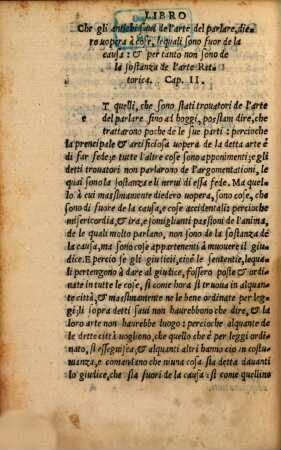 LIBRO
Che gli antichi saui de l'arte del parlare, die-
ro uopera à cose, lequali sono fuor de la
causa: & per tanto non sono de
la sostanza de l'arte Ret
torica. Cap. II.
e
T quelli, che sono stati trouatori de l'arte
del parlare fino ad hoggi, possiam dire, che
trattarono poche de le sue parti: percioche
la prencipale & artificiosa uopera de la detta arte é
di far fede; e tutte l'altre cose sono apponimenti; e gli
detti trouatori non parlarono de l'argomentationi, le
quai sono la sostanza e li nerui di essa fede. Ma quel-
lo à cui massimamente diedero uopera, sono cose, che
sono di fuore de la causa, e cose accidentali: percioche
misericordia, & ira, e somiglianti passioni de l'anima,
de le quali molto parlano, non sono de la sostanza de
la causa, ma sono cose appartenenti à muouere il giu-
dice. E percio se gli giuditij, cioè le sententie, lequa-
li pertengono à dare al giudice, fossero poste & ordi-
nate in tutte le cose, si come hora si truoua in alquante
città, & massimamente ne le bene ordinate per leg-
gi; li sopra detti saui non haurebbono che dire, & la
loro arte non haurebbe luogo: percioche alquante de
le dette città uogliono, che quello che è per leggi ordi-
nato, si essegnisca, & alquanti altri hanno cio in costu-
manza, e comandano che niuna cosa sia detta dauanti
lo giudice, che sia fuori de la causa: si come quelli no